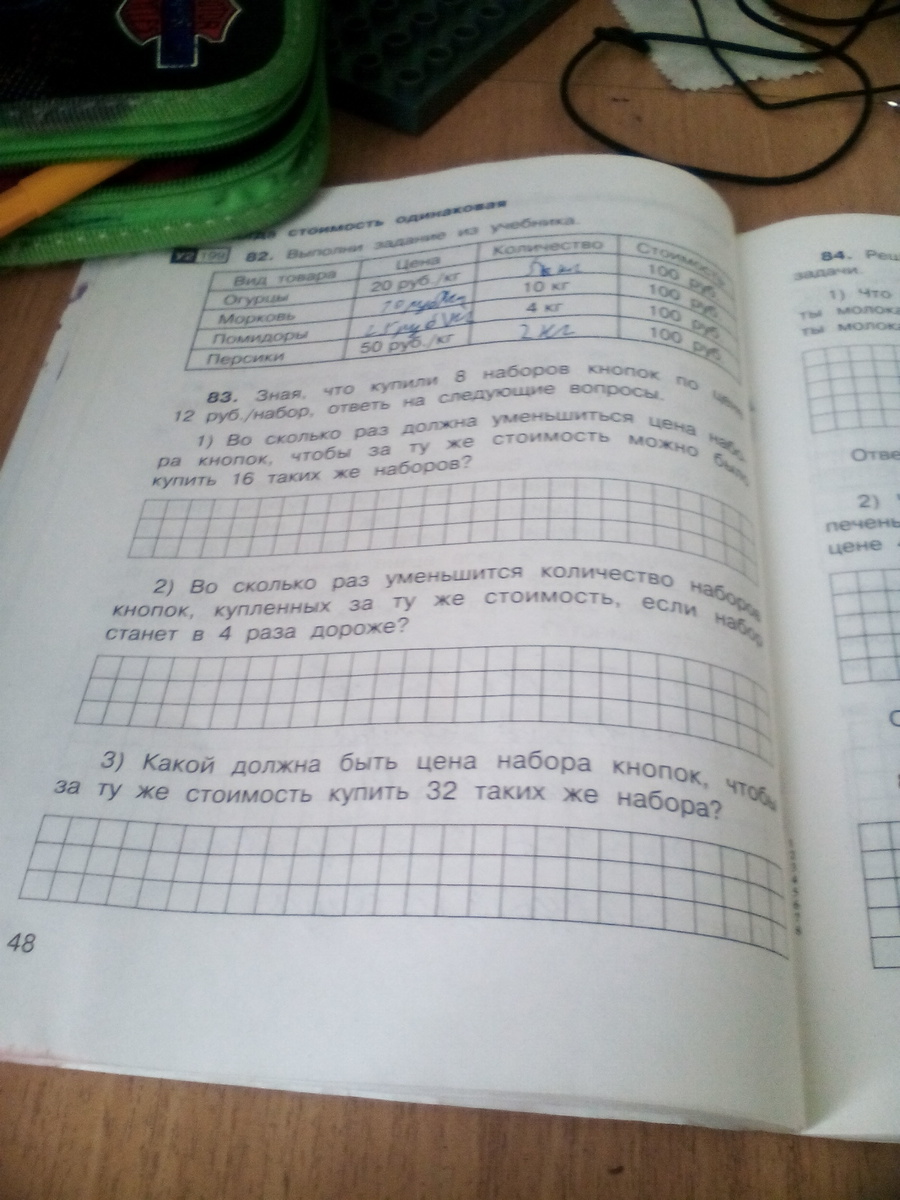 стоимость одинаковая
У2 199 82. Выполни задание из учебника.
Вид товара Цена Количество Стоимость
Огурцы 20 руб./кг 5 кг 100 руб.
Морковь 10 руб/кг 10 кг 100 руб.
Помидоры 25 руб/кг 4 кг 100 руб.
Персики 50 руб./кг 2 кг 100 руб.
83. Зная, что купили 8 наборов кнопок по цене
12 руб./набор, ответь на следующие вопросы.
1) Во сколько раз должна уменьшиться цена набо-
ра кнопок, чтобы за ту же стоимость можно было
купить 16 таких же наборов?
2) Во сколько раз уменьшится количество наборов
кнопок, купленных за ту же стоимость, если набор
станет в 4 раза дороже?
3) Какой должна быть цена набора кнопок, чтобы
за ту же стоимость купить 32 таких же набора?
48
84. Реш
задачи.
1) Что
ты молока
ты молок
Отве
2)
печень
цене